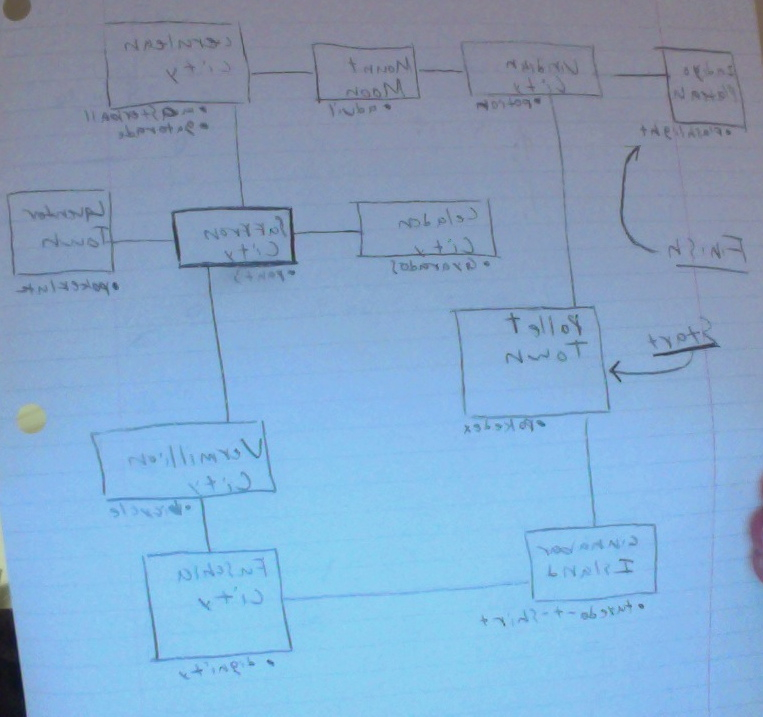 Indigo
Plateau
•Flashlight
Viridian
City
•potion
Mount
Moon
•advil
Cerulean
City
•masterball
•gatorade
Finish
Celadon
City
•Gyarados
Saffron
City
•pants
Lavendor
Town
•pokeflute
Start
Pallet
Town
•pokedex
Vermillion
City
•bicycle
Cinnabar
Island
•tuxedo-t-shirt
Fuschia
City
•dignity